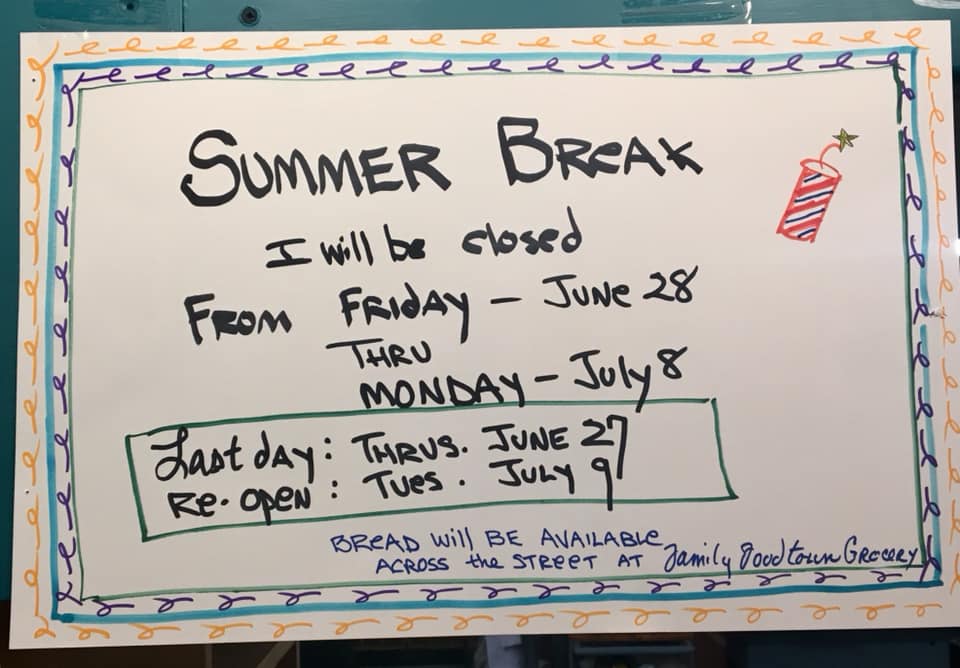 SUMMER BREAK
I will be closed
FROM FRIDAY - JUNE 28
THRU
MONDAY - July 8
Last day: THRUS. JUNE 27
Re-open: Tues. JULY 9
BREAD will BE AVAILABLE
ACROSS the STREET AT Family Foodtown GROCERY